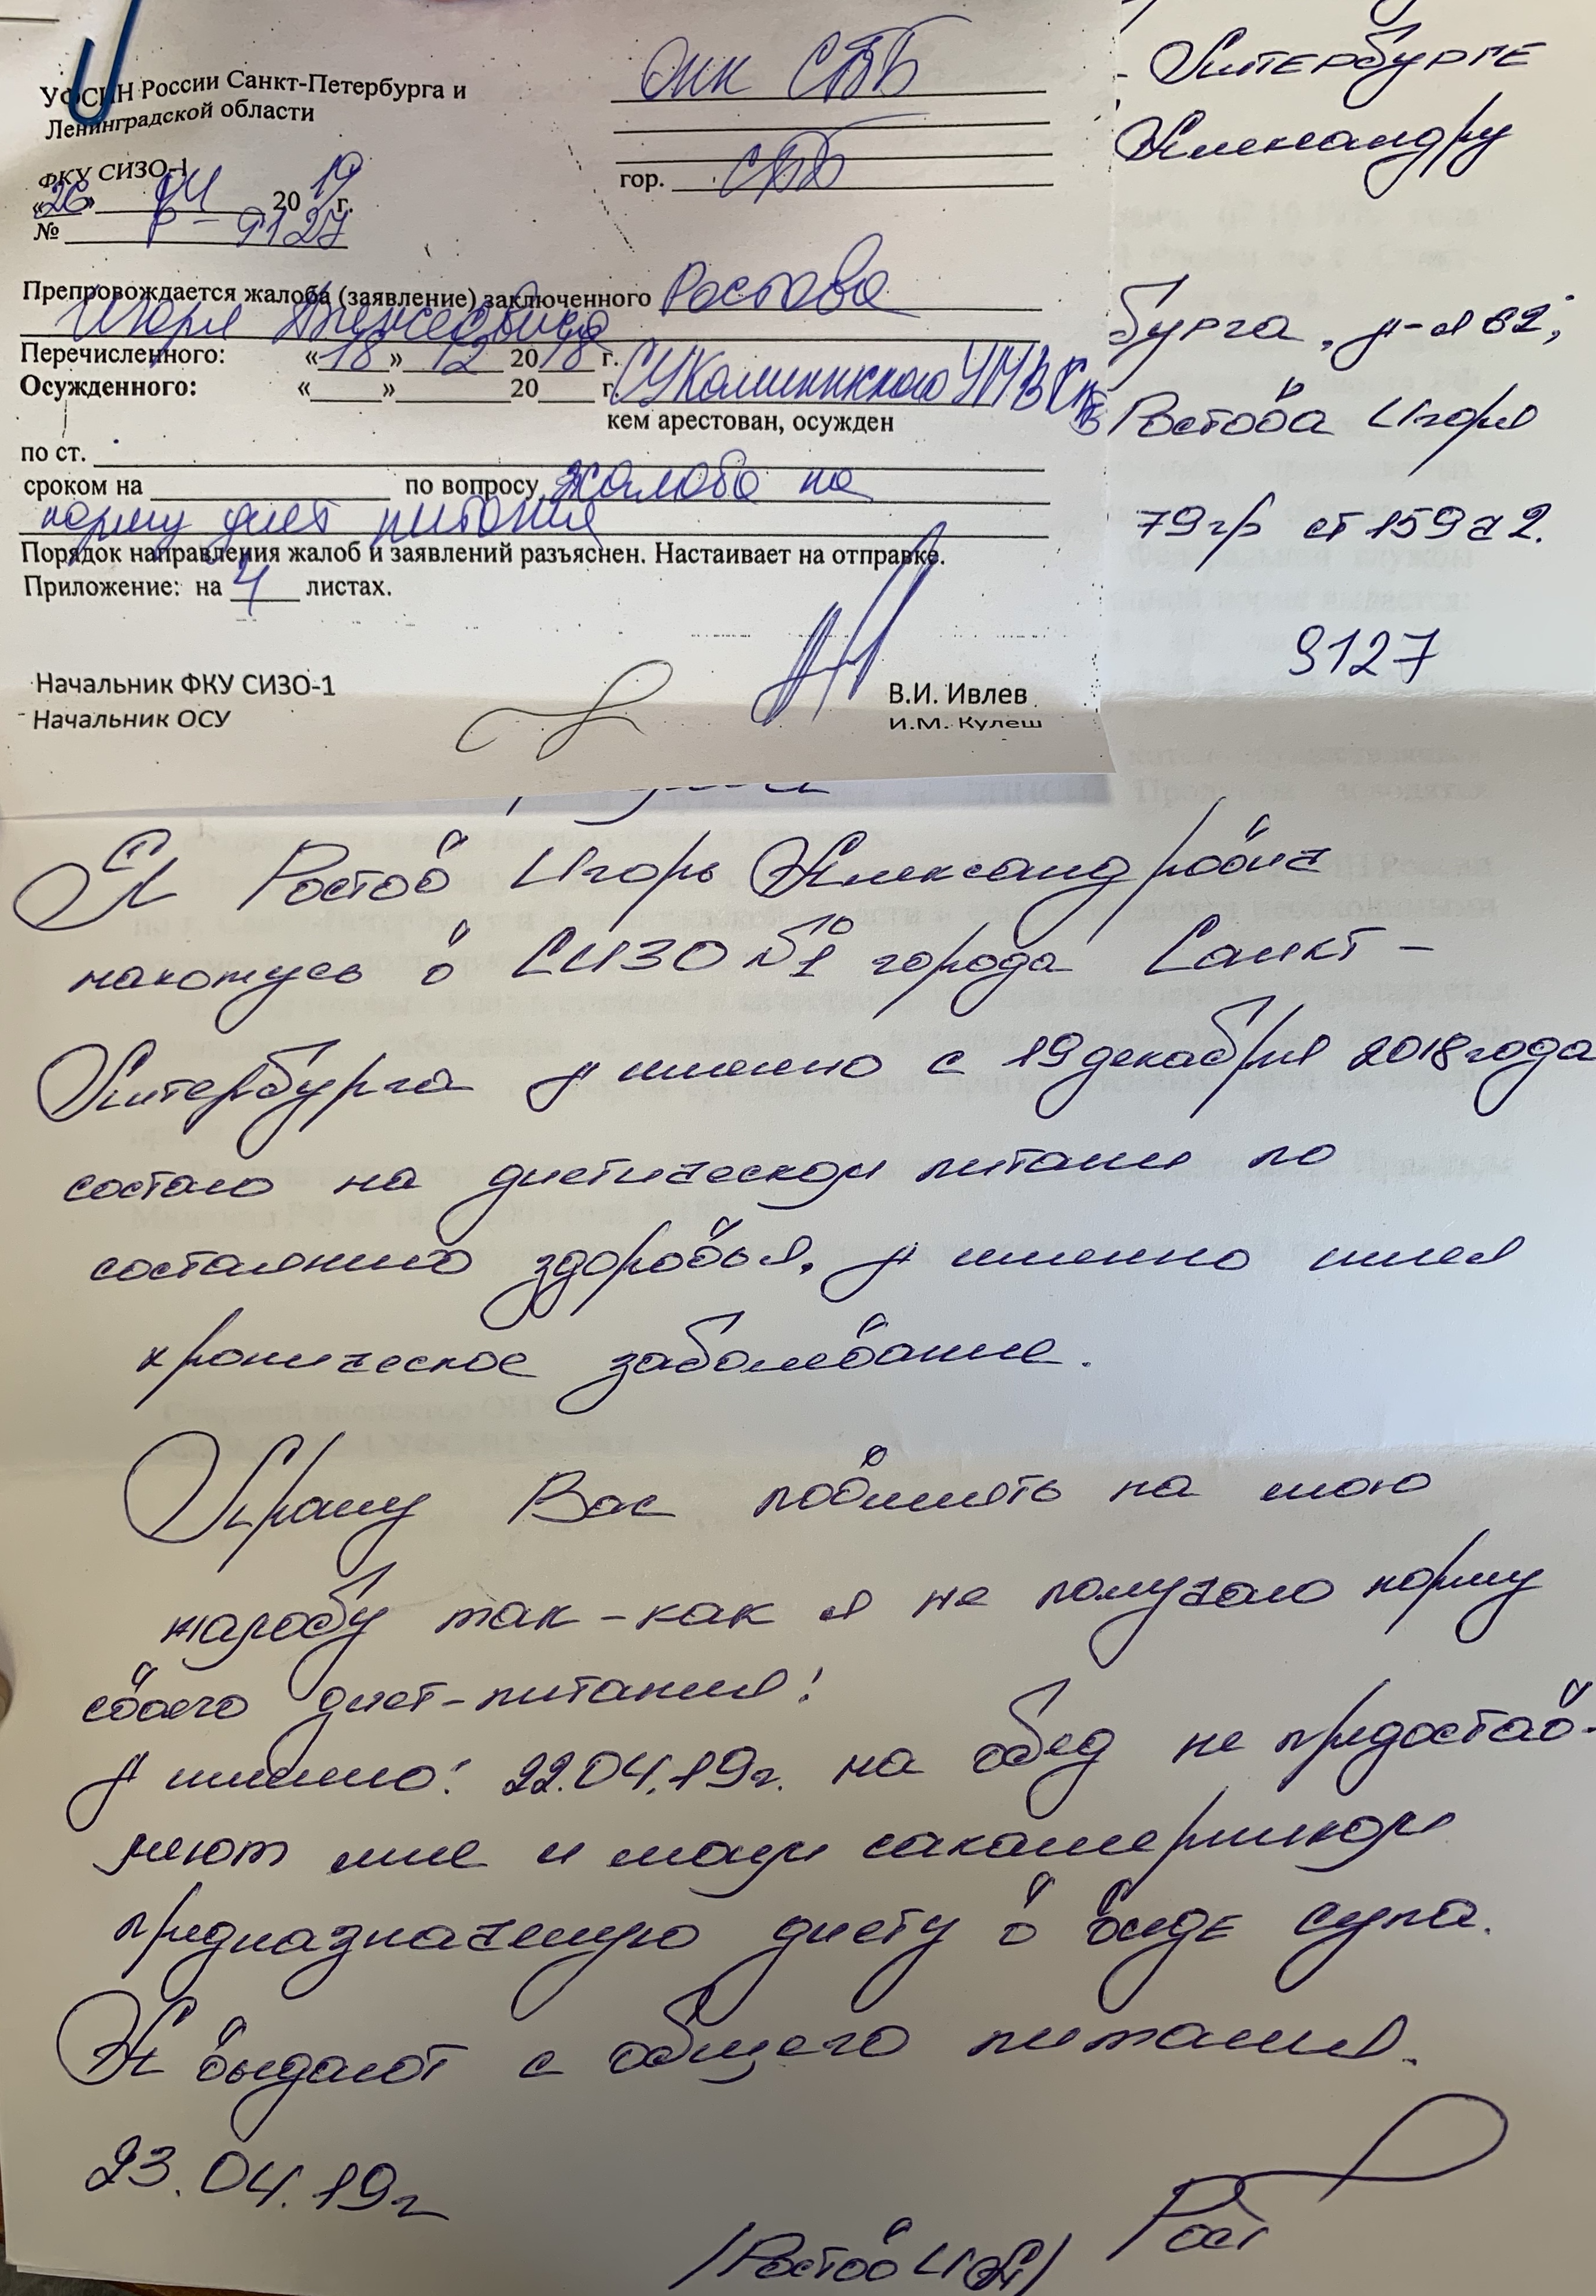 УФСИН России Санкт-Петербурга и
Ленинградской области
ФКУ СИЗО-1
«26» 04 2019 г.
№ Р-9127
ОНК СПБ
гор. СПБ
Препровождается жалоба (заявление) заключенного Ростова
Игоря
Перечисленного: «18» 12 2018 г.
Осужденного: « » 20 г. СУ Калининского УМВД
кем арестован, осужден
по ст.
сроком на по вопросу жалоба на
норму диет питания
Порядок направления жалоб и заявлений разъяснен. Настаивает на отправке.
Приложение: на 4 листах.
Начальник ФКУ СИЗО-1 В.И. Ивлев
Начальник ОСУ И.М. Кулеш
Питербурге
Александру
бурга,
Ростова Игоря
79гр ст 159 ч2.
9127
Я Ростов Игорь Александрович
нахожусь в СИЗО №1 города Санкт-
Питербурга а именно с 19 декабря 2018 года
состаю на диетическом питание по
состаянию здоровья, а именно имея
хроническое заболевание.
Прашу Вас повлиять на мою
жаробу так-как я не получаю норму
своего диет-питания!
А именно: 22.04.19г. на обед не предостав-
ляют мне и маим сакамерникам
предназначеную диету в виде супа.
А выдают с общего питания.
23.04.19г
/Ростов И А/ Рост